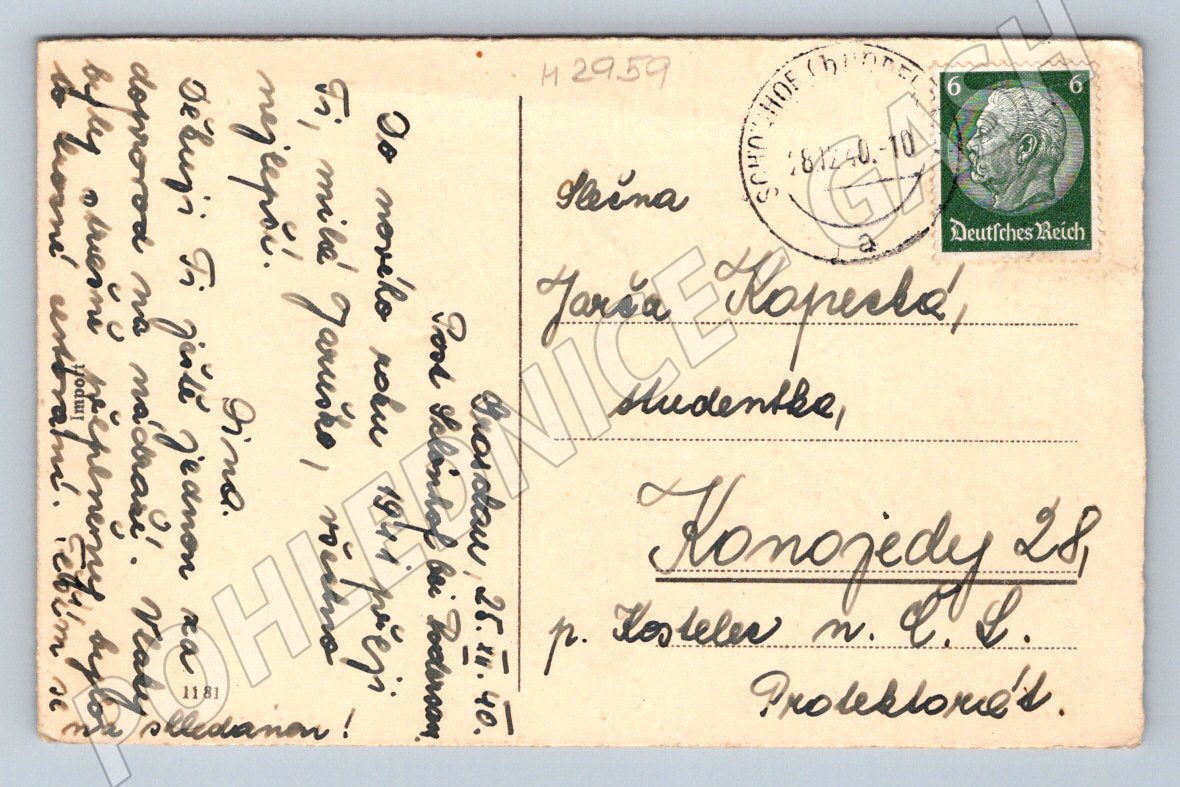 H 2959
SCHÖNHOF (b) PODER
28.12.40.-10
a
6 6
Deutsches Reich
Slečna
Jarča Kopecká,
studentka,
Konojedy 28,
p. Kostelec n. Č. L.
Protektorát.
25. XII. 40.
Post Schönhof bei Podersam
Do nového roku 1941 přeji
Ti, milá Jaruško, všechno
nejlepší.
Děkuji Ti ještě jednou za
doprovod na nádraží. Vlaky
byly strašně přeplněny, bylo
to hrozné cestování. Těším se
na shledanou!
Import
1181
POHLEDNICE - GACH